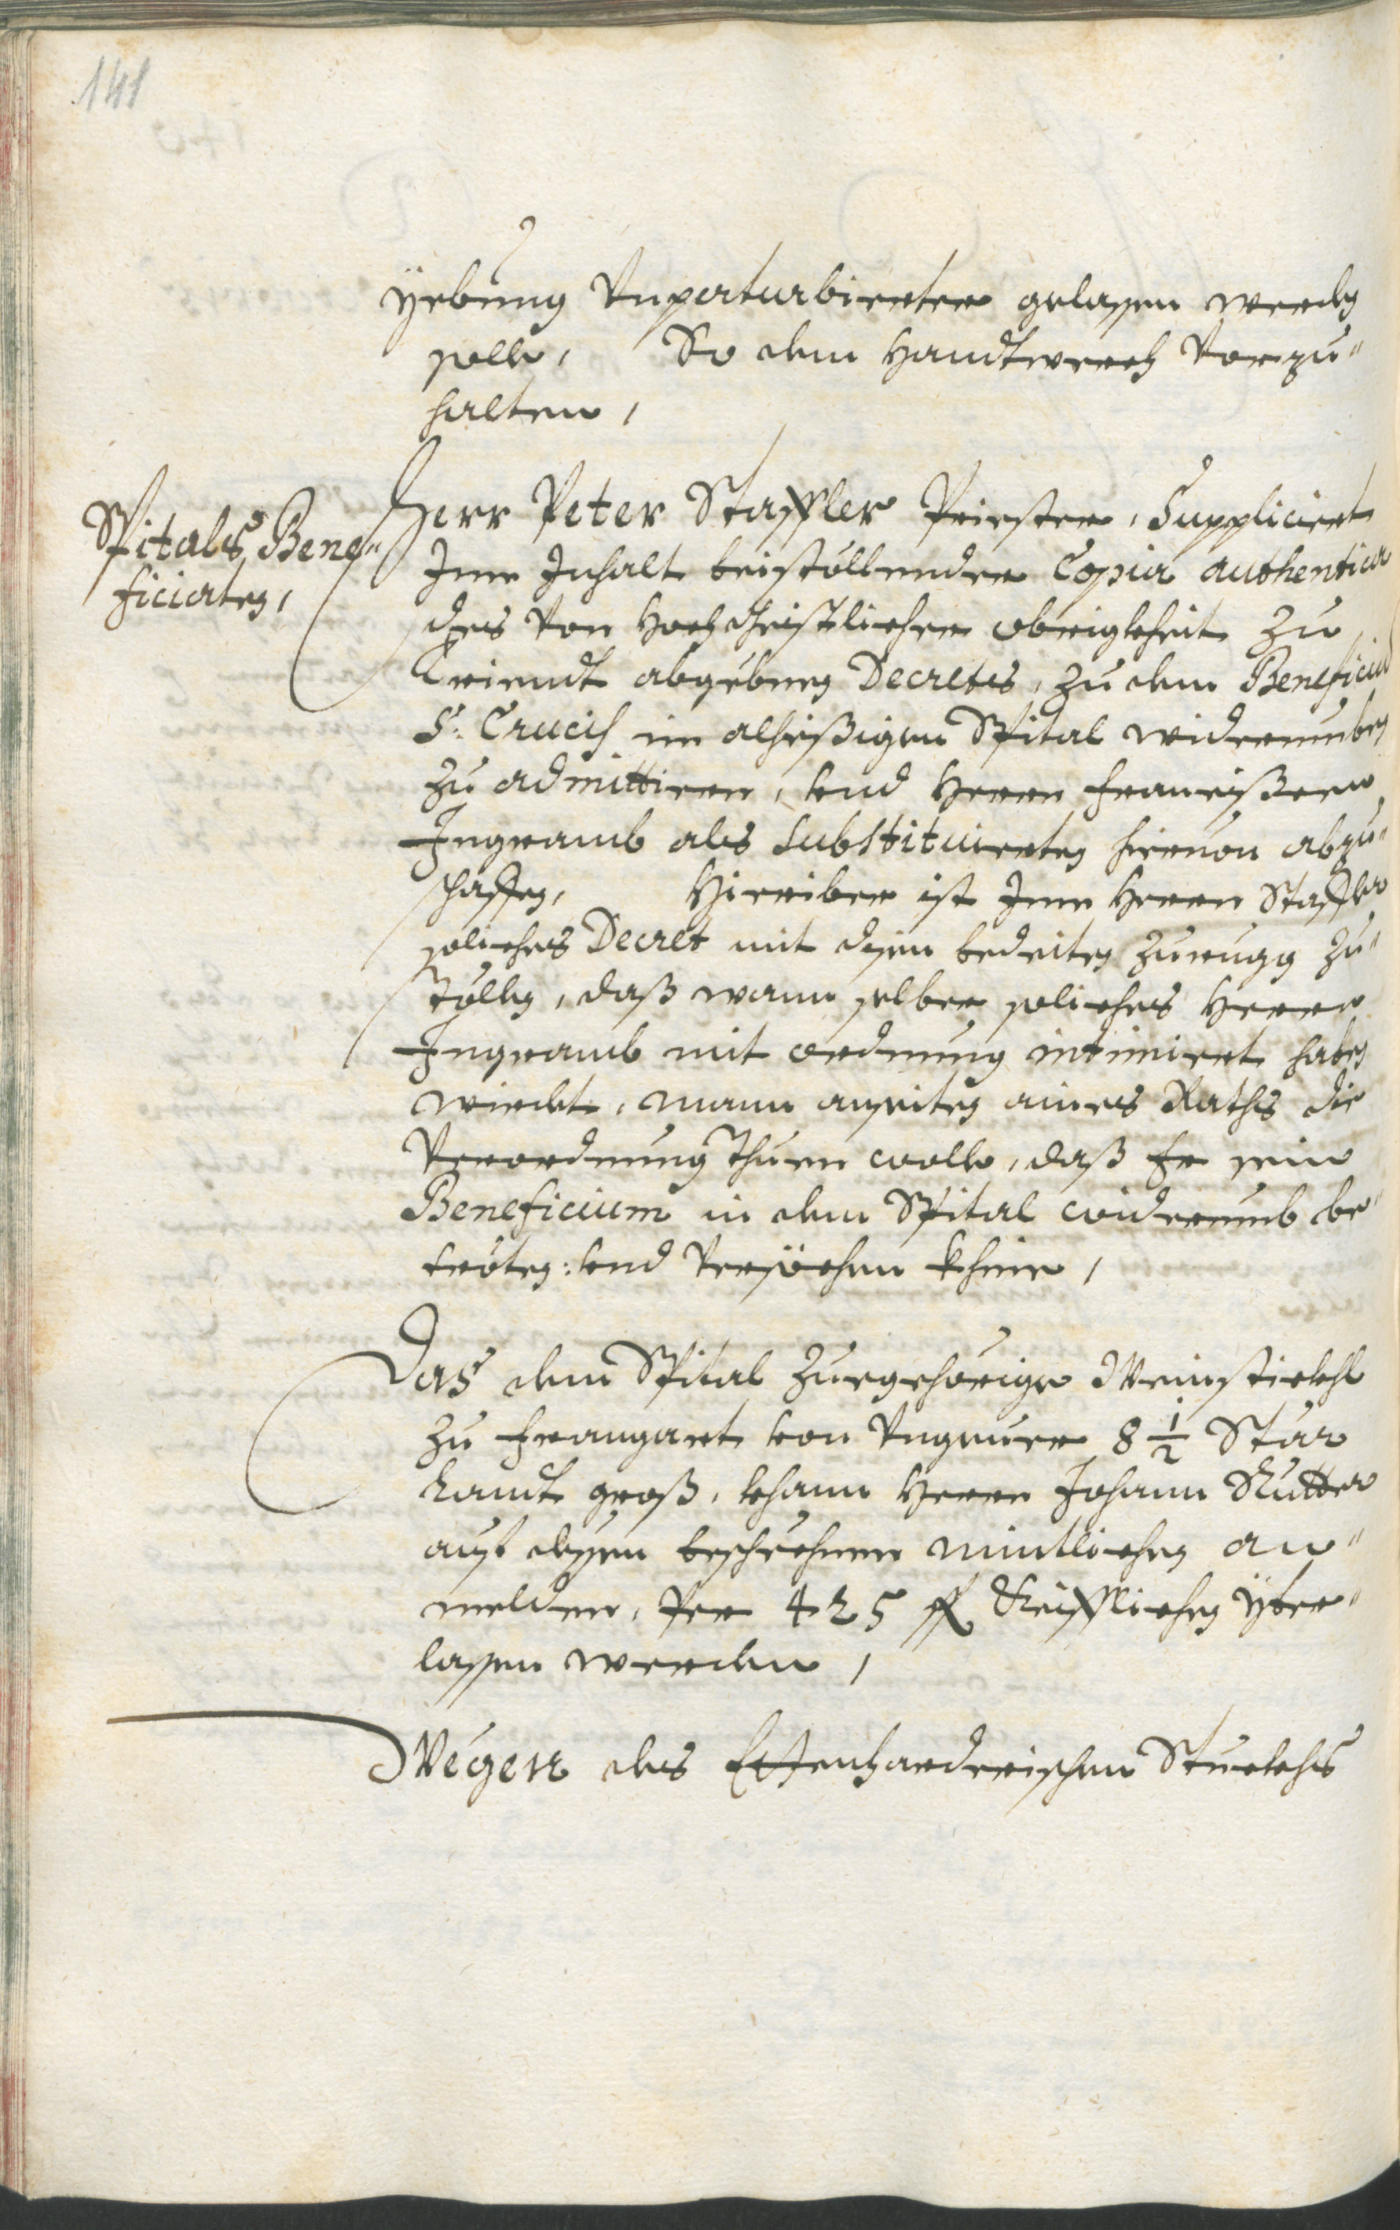 141
yebung Vnperturbierter gelassen werden
solle, So dem Handtwerch Vorzu"
halten,
Spitals Bene"
ficiaten,
Herr Peter Staffler Priester, Suppliciert
Ime Inhalt beistöllender Copia authentica
des Von Hochchristlicher obrigkheit zu
Triendt abgebnen Decretes, zu dem Beneficio
S: Crucis im alhießigen Spital widerumben
zu admittiren, vnd Herrn Franzißcen
Ingramb als Substituierten hieruon abzu"
schaffen, Hieriber ist Ime Herrn Staffler
soliches Decret mit disem bedeiten zurugg zu"
stöllen, daß wann selber soliches Herrn
Ingramb mit ordnung intimiert haben
wierdt, mann anseiten aines Raths die
Verordnung thuen wolle, daß Er sein
Beneficium in dem Spital widerumb be"
tröten: vnd Versöchen khine,
Das dem Spital zuegehörige Weinstickhl
zu Frangart von Vngeuer 8 1/2 Star
Landt groß, khann Herrn Johann Kutter
auf dessen beschechnen mintlichen an"
melden, Per 425 fl Keifflichen yber"
lassen werden,
Wegen des Ettenhardrischen Stuckhs